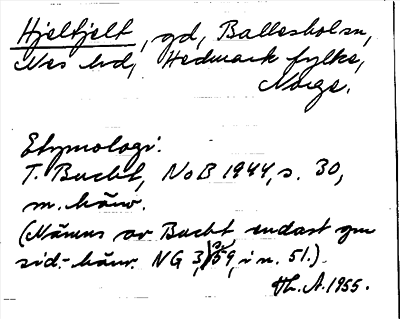 Hjelfjelt, gd, Ballesholsn,
Nes hd, Hedmark fylke,
Norge.
Etymologi:
T. Bucht, NoB 1944, s. 30,
m. hänv.
(Nämns av Bucht endast gm
sid.-hänv. NG 3, 59, i n. 51.).
Th. A. 1955.